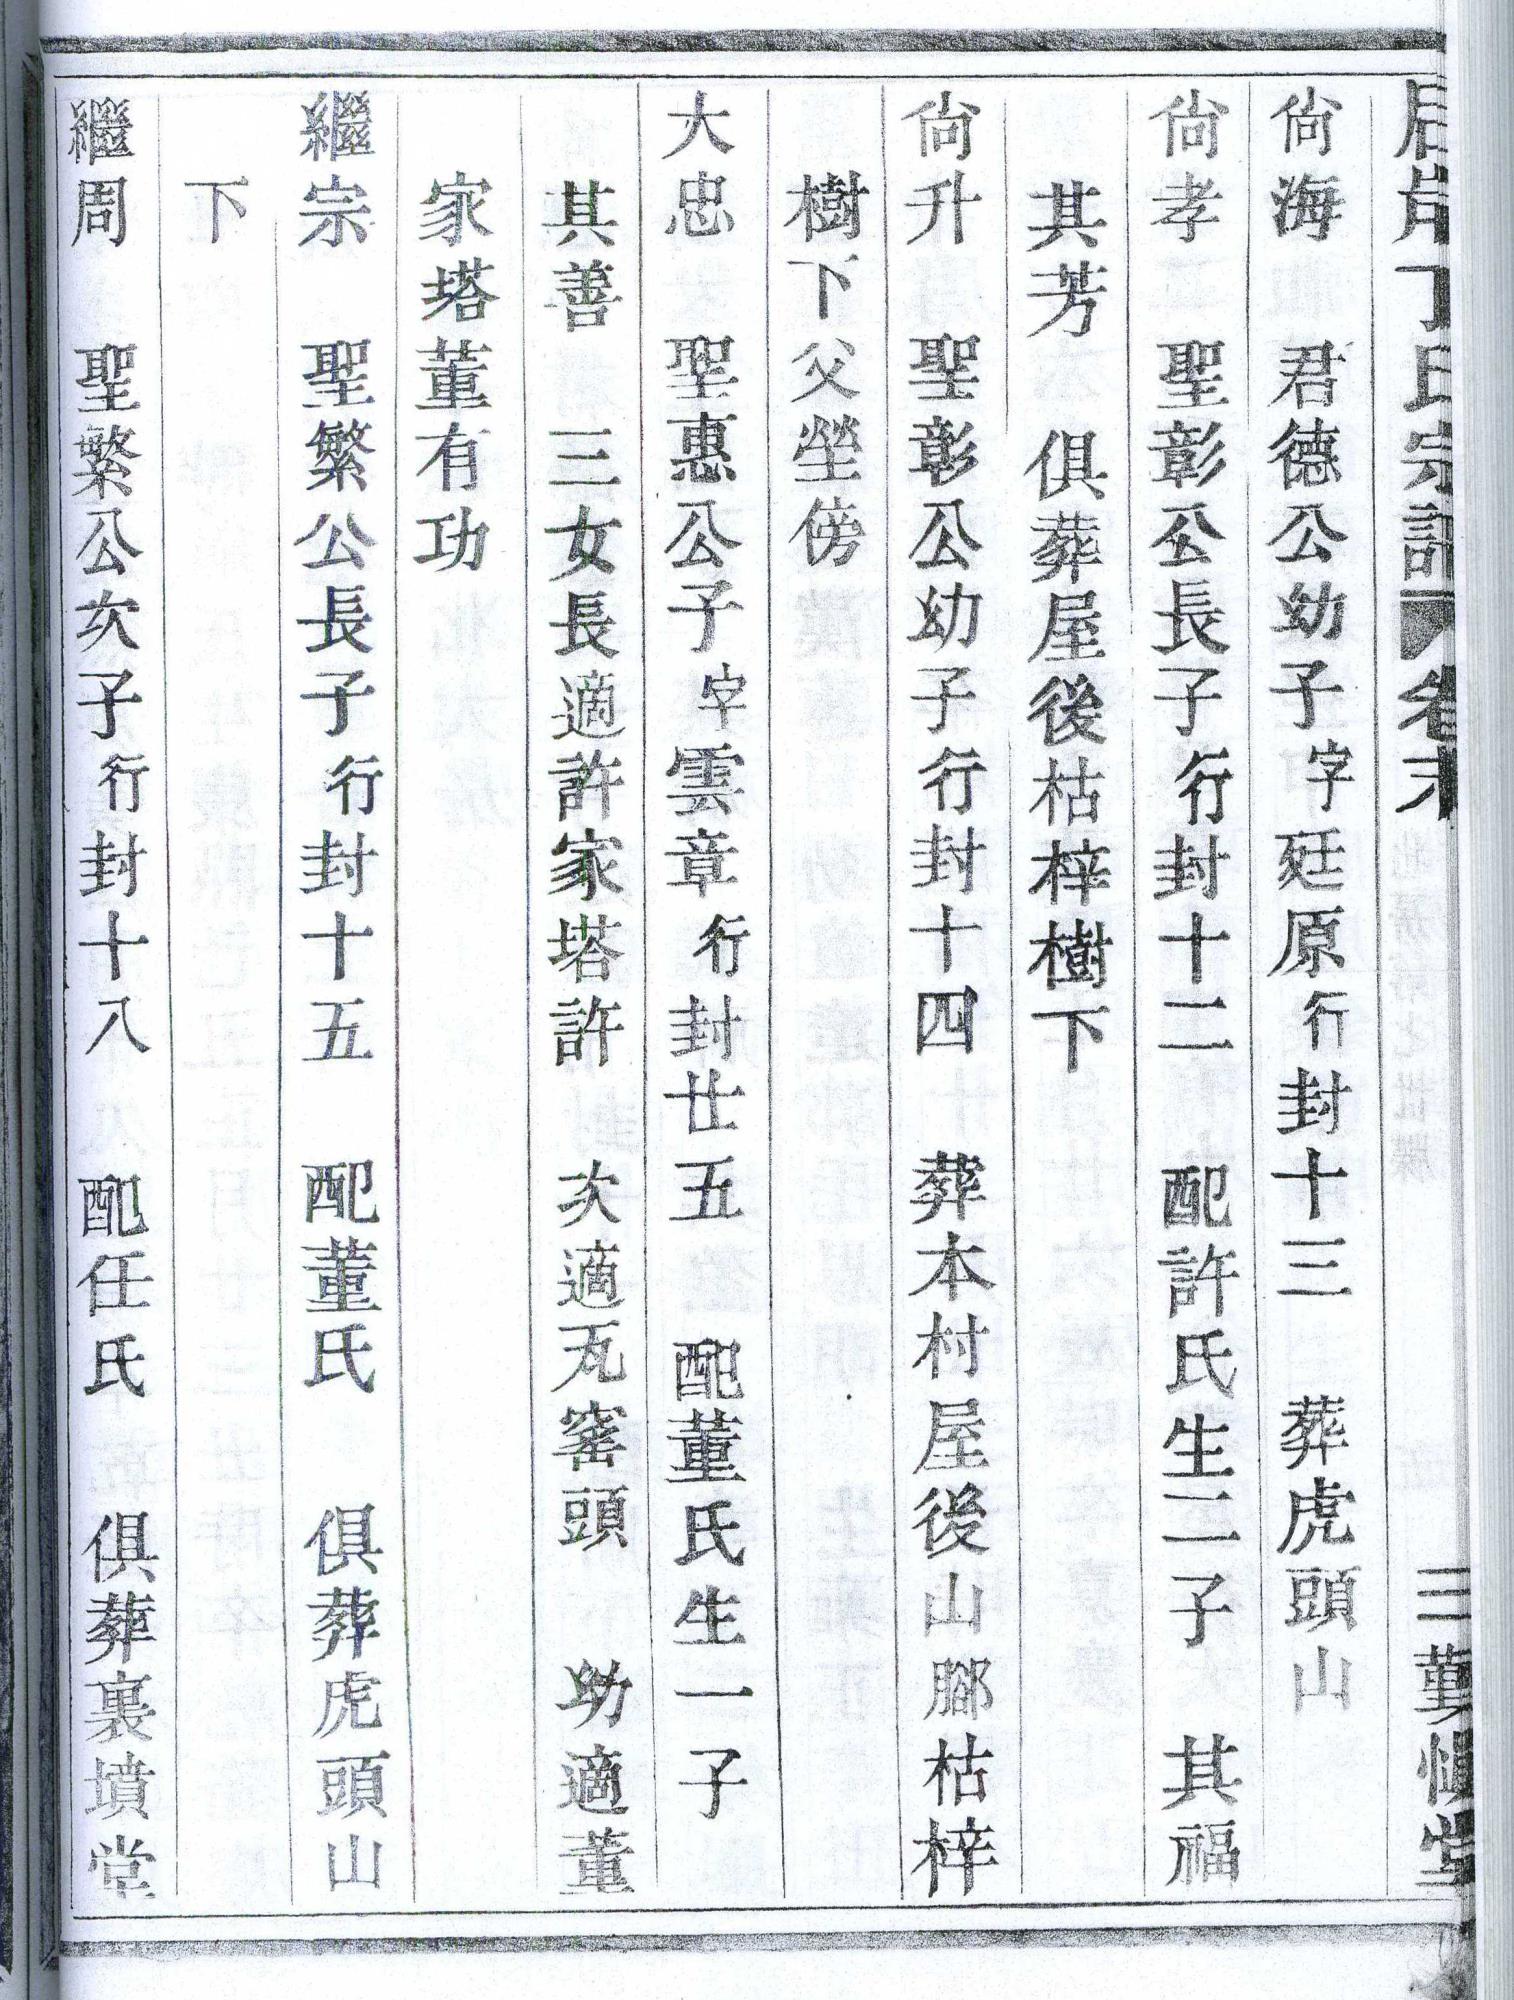 丁氏宗譜 卷末 三 勤慎堂
尙海 君德公幼子字廷原行封十三 葬虎頭山
尙孝 聖彰公長子行封十二 配許氏生二子 其福
其芳 俱葬屋後枯梓樹下
尙升 聖彰公幼子行封十四 葬本村屋後山腳枯梓
樹下父塋傍
大忠 聖惠公子字雲章行封廿五 配董氏生一子
其善 三女長適許家塔許 次適瓦窰頭 幼適董
家塔董有功
繼宗 聖繁公長子行封十五 配董氏 俱葬虎頭山
下
繼周 聖繁公次子行封十八 配任氏 俱葬裏墳堂